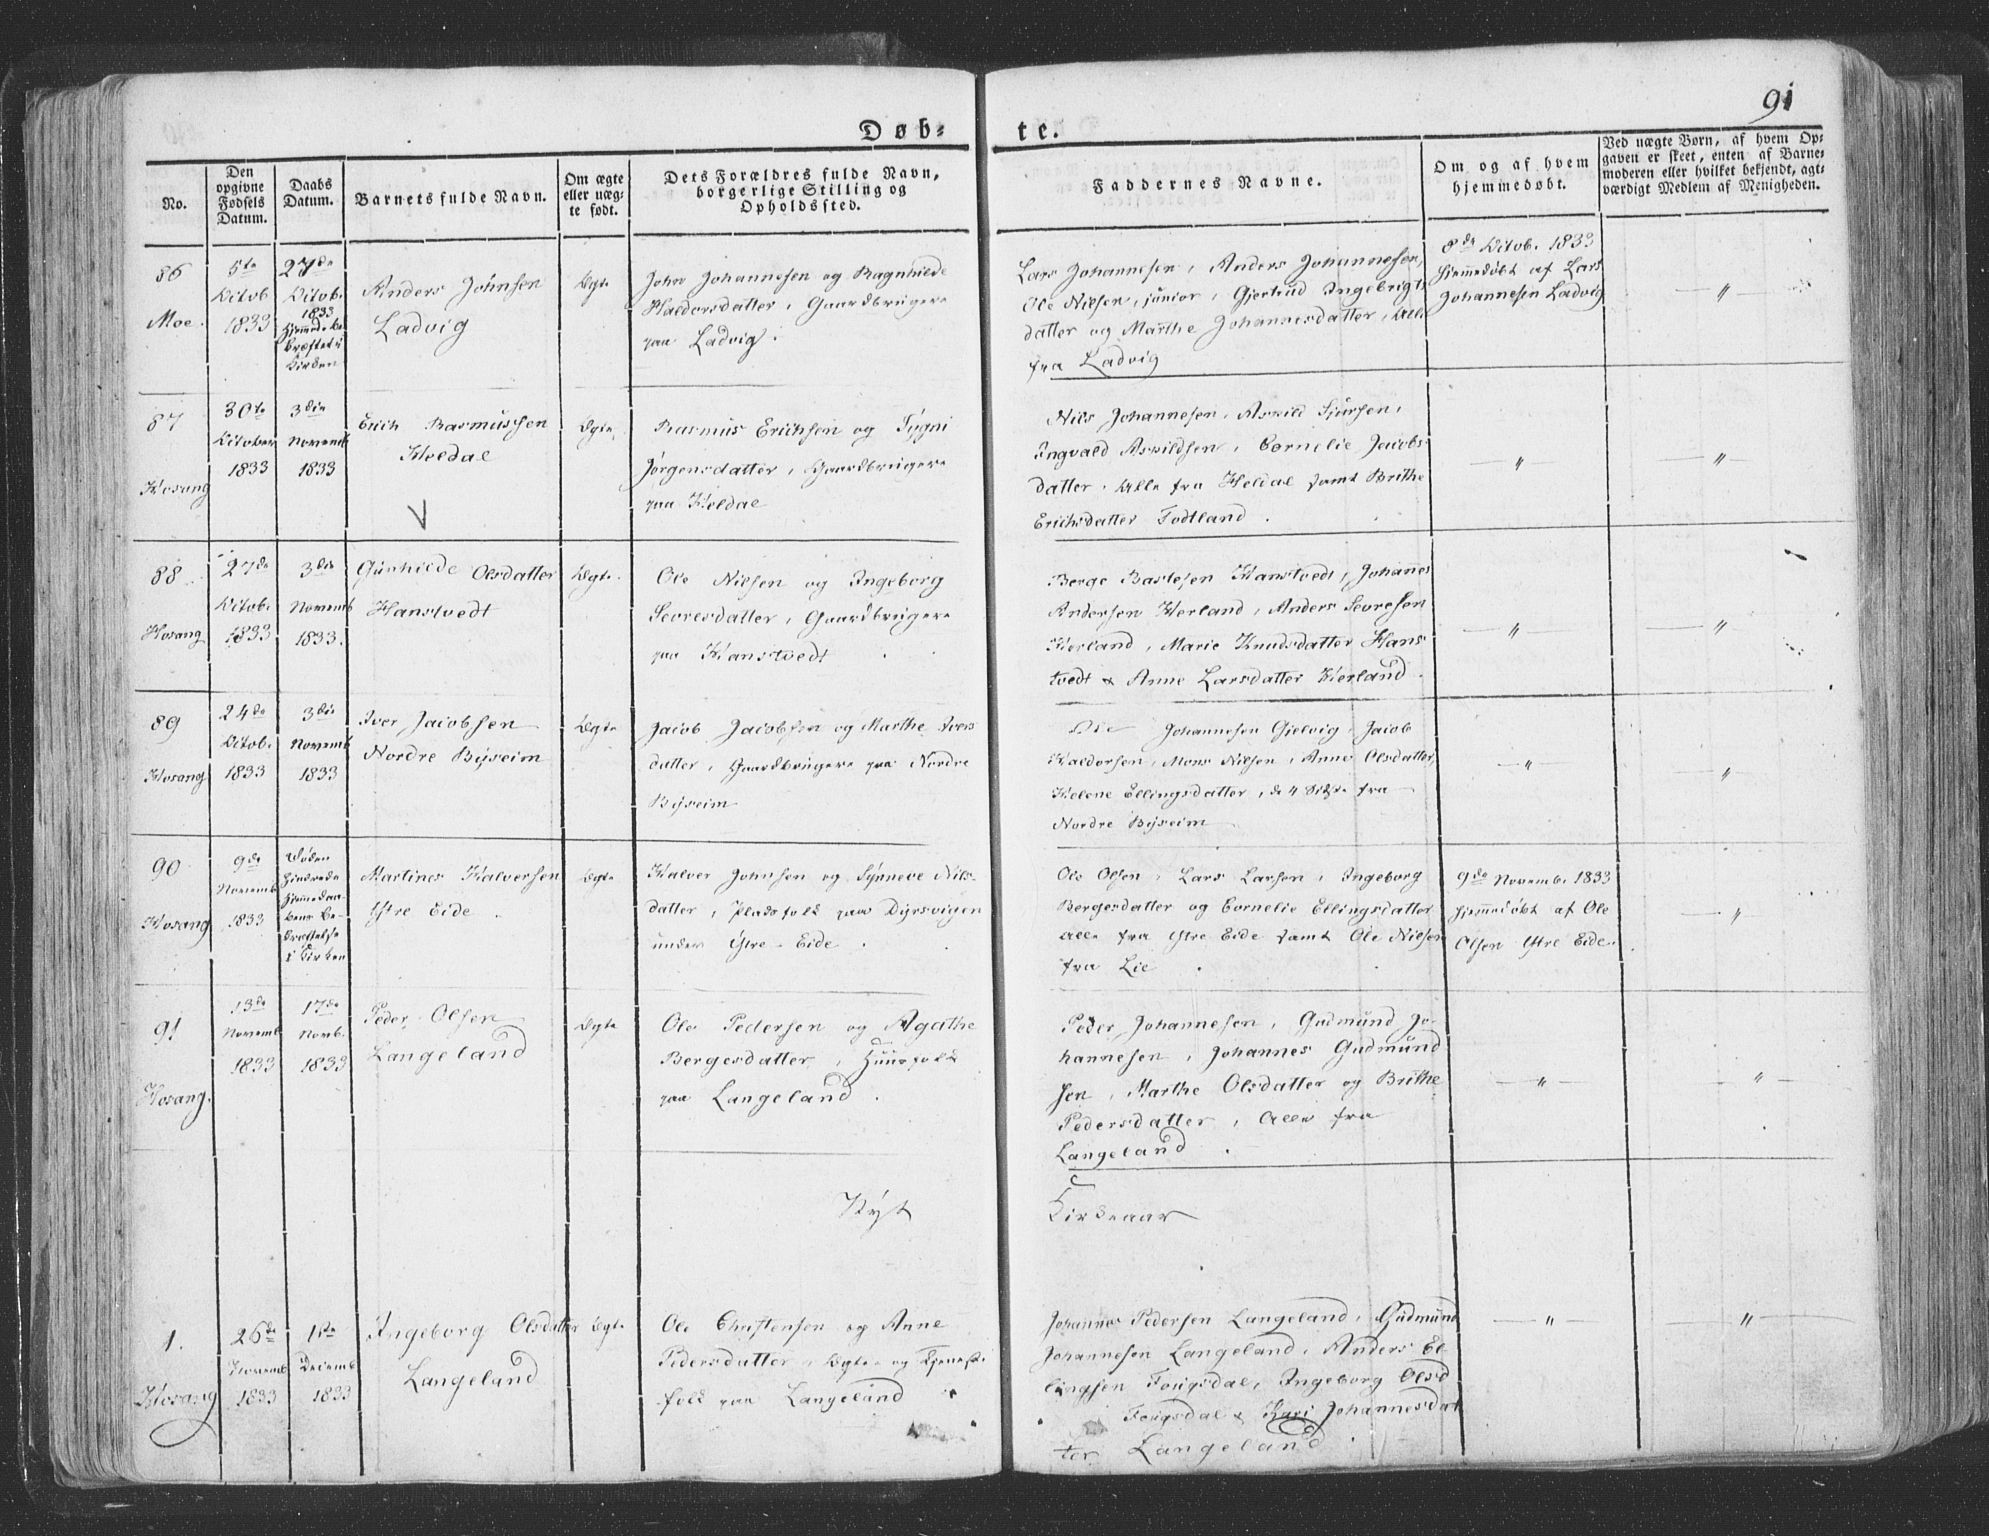 91
Døb-
te.
No.
Den
opgivne
Fødsels
Datum.
Daabs
Datum.
Barnets fulde Navn.
Om ægte
eller uæg-
te født.
Dets Forældres fulde Navn,
borgerlige Stilling og
Opholdssted.
Faddernes Navne.
Om og af hvem
hjemmedøbt.
Ved uægte Børn, af hvem Op-
gaven er skeet, enten af Barne-
moderen eller hvilket bekjendt, agt-
værdigt Medlem af Menigheden.
86
Moe.
5te
Octob
1833
27de
Octob.
1833
Hjemmed. be-
kræftet i
Kirken
Anders Johnsen
Ladvig
Ægte
John Johannesen og Ragnhilde
Haldorsdatter, Gaardbrugere
paa Ladvig.
Lars Johannesen, Anders Johannesen,
Ole Nilsen, junior, Gjertrud Ingebrigts
datter og Marthe Johannesdatter, Alle
fra Ladvig
8de Octob. 1833
hjemmedøbt af Lars
Johannesen Ladvig
"
87
Hosang
30te
October
1833
3die
Novemb
1833
Erich Rasmussen
Heldal
V
Ægte
Rasmus Erichsen og Sygni
Jørgensdatter, Gaardbrugere
paa Heldal
Nils Johannesen, Askild Sjursen,
Ingvald Askildsen, Cornelie Jacobs-
datter, Alle fra Heldal samt Brithe
Erichsdatter Fodtland.
"
"
88
Hosang
27de
Octob.
1833
3die
Novemb
1833.
Gunhilde Olsdatter
Hanstvedt
Ægte.
Ole Nilsen og Ingeborg
Sevresdatter, Gaardbrugere
paa Hanstvedt
Berge Bastesen Hanstvedt, Johannes
Andersen Herland, Anders Sevresen
Herland, Marie Knudsdatter Hans
tvedt & Anne Larsdatter Herland.
"
"
89
Hosang
24de
Octob.
1833
3die
Novemb
1833
Iver Jacobsen
Nordre Bysheim
Ægte
Jacob Jacobsen og Marthe Ivers
datter, Gaardbrugere paa Nordre
Bysheim
Ole Johannesen Gjelvig, Jacob
Haldorsen, Mons Nilsen, Anne Olsdatter,
Helene Ellingsdatter, de 4 sidste fra
Nordre Bysheim
"
"
90
Hosang
9de
Novemb
1833
Hjemmedaa-
bens be-
kræftelse
i Kirken
Martines Halversen
Ystre Eide
Ægte
Halver Johnsen og Synneve Nils-
datter, Pladsfolk paa Dyrsvigen
under Ystre Eide.
Ole Olsen, Lars Larsen, Ingeborg
Bergesdatter og Cornelie Ellingsdatter
alle fra Ystre Eide samt Ole Nilsen
fra Lie
9de Novemb. 1833
hjemmedøbt af Ole
Olsen Ystre Eide.
"
91
Hosang.
13de
Novemb
1833
17de
Novb.
1833
Peder Olsen
Langeland
Ægte
Ole Pedersen og Agathe
Bergesdatter, Huusfolk
paa Langeland.
Peder Johannesen, Gudmund Jo-
hannesen, Johannes Gudmund
sen, Marthe Olsdatter og Brithe
Pedersdatter, Alle fra
Langeland.
"
"
Nyt
Kirkeaar
1.
Hosang
26de
Novemb
1833
1ste
Decemb
1833
Ingeborg Olsdatter
Langeland
Ægte
Ole Christensen og Anne
Pedersdatter, Ægte- og Tjeneste
folk paa Langeland
Johannes Pedersen Langeland, Gudmund
Johannesen Langeland, Anders El
lingsen Fougsdal, Ingeborg Olsd
Fougsdal & Kari Johannesdat
ter Langeland.
"
"